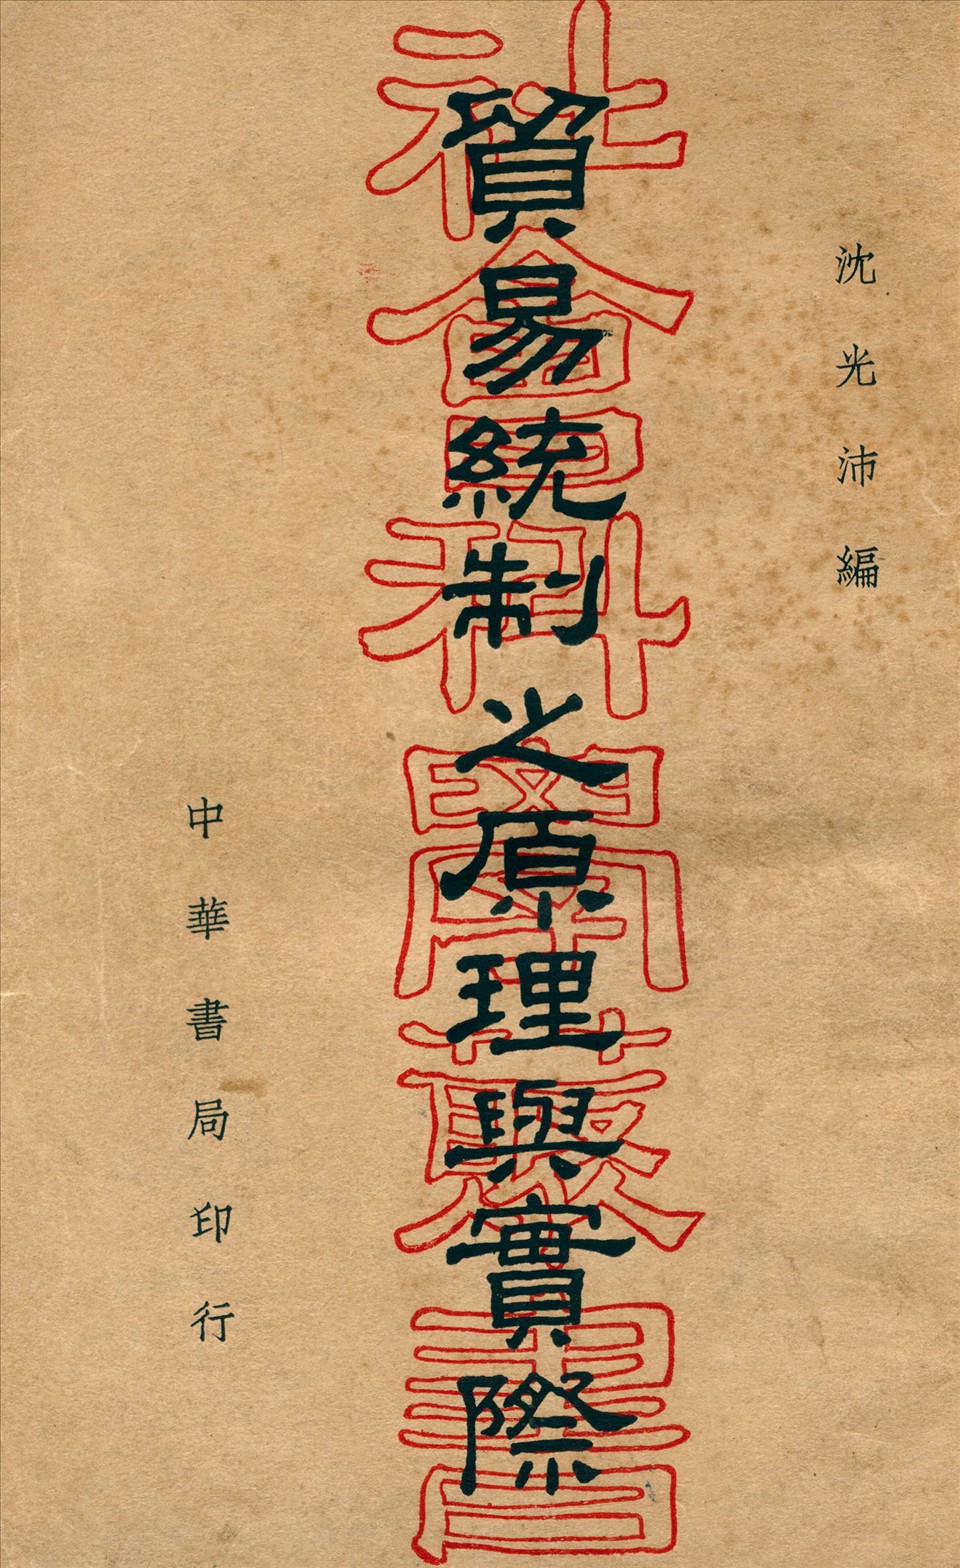 沈光沛編
貿易統制之原理與實際
社會科學叢書
中華書局印行